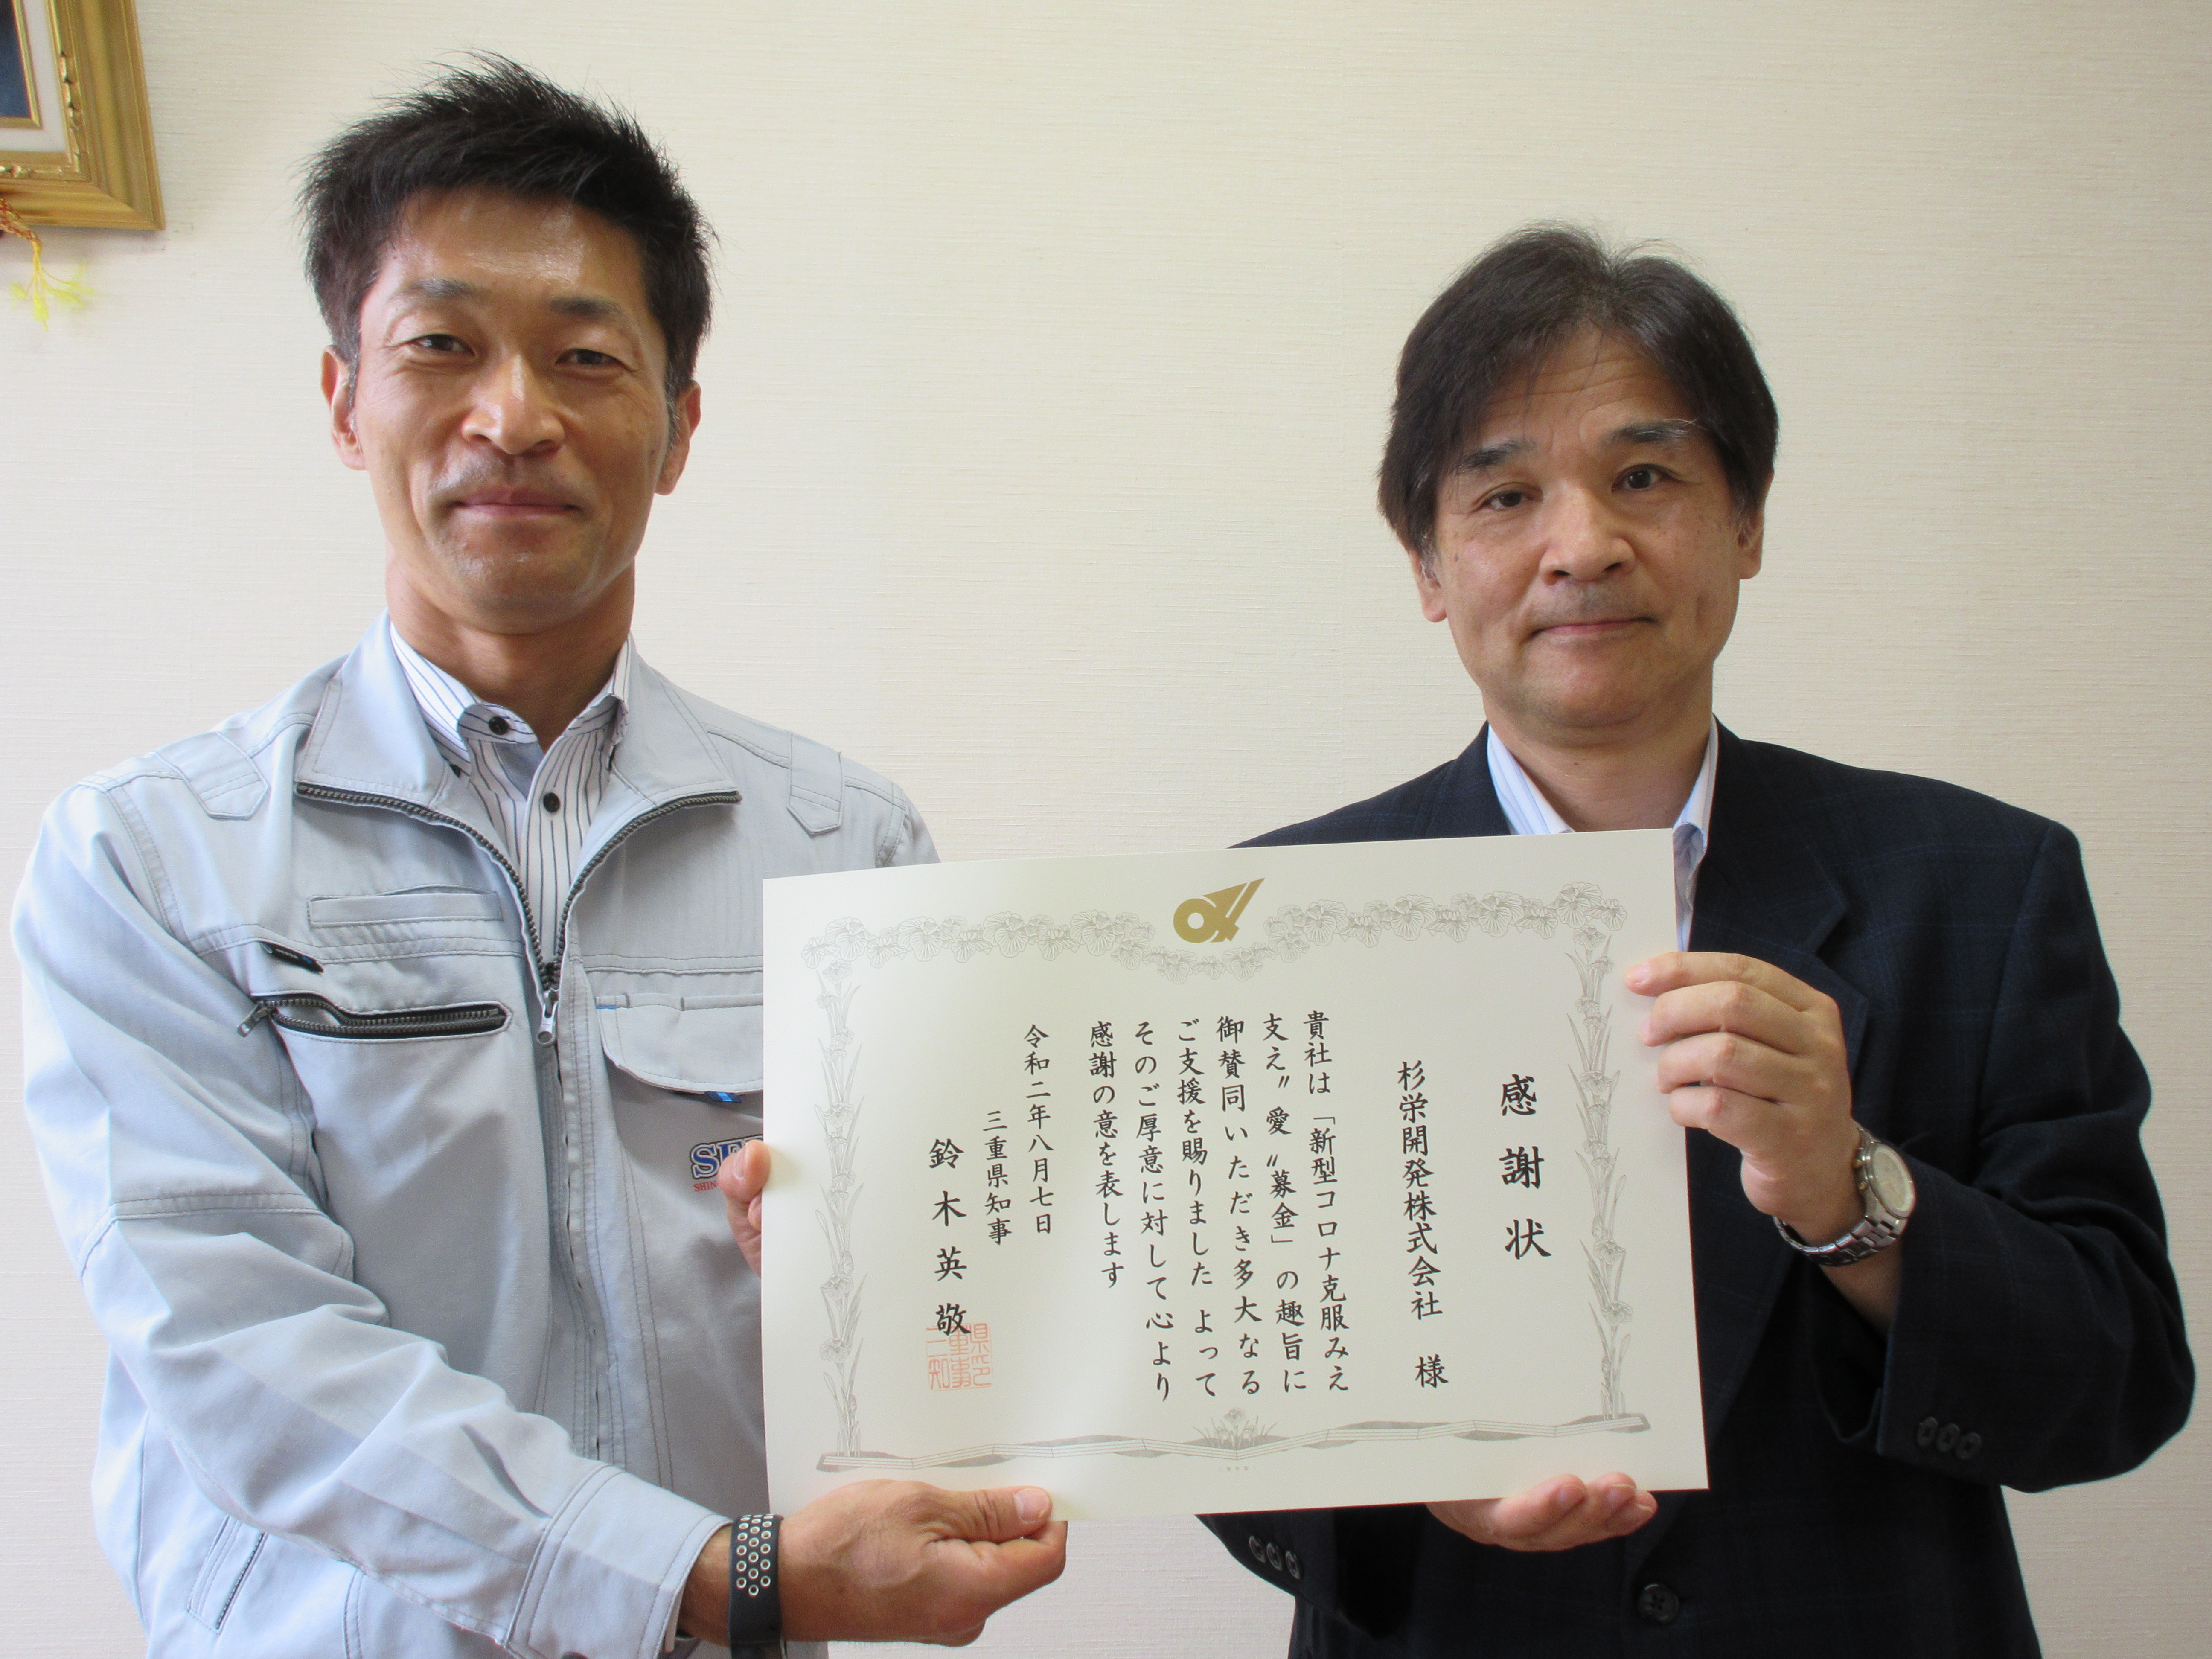 感謝状
杉栄開発株式会社 様
貴社は「新型コロナ克服みえ
支え〝愛〟募金」の趣旨に
御賛同いただき多大なる
ご支援を賜りました よって
そのご厚意に対して心より
感謝の意を表します
令和二年八月七日
三重県知事
鈴木英敬